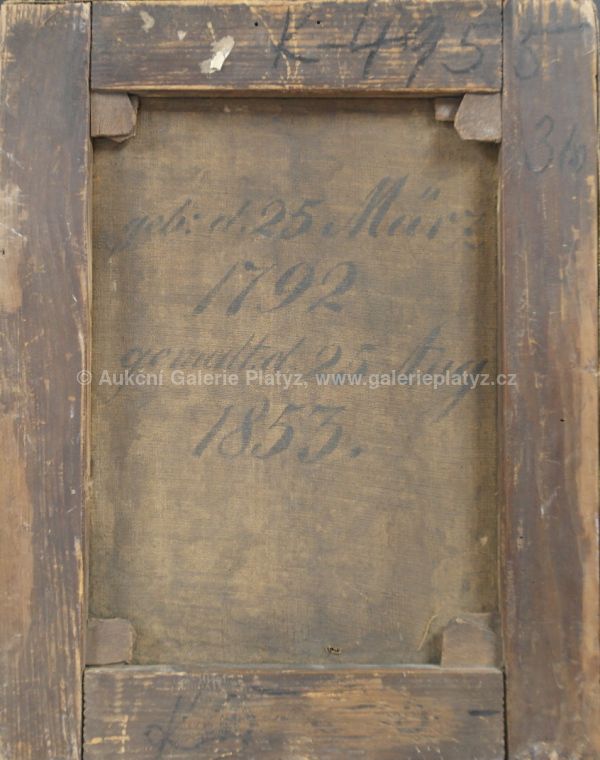 K-4955
geb: d. 25 März
1792
gemalt d. 25 Aug
© Aukční Galerie Platyz, www.galerieplatyz.cz
1853.